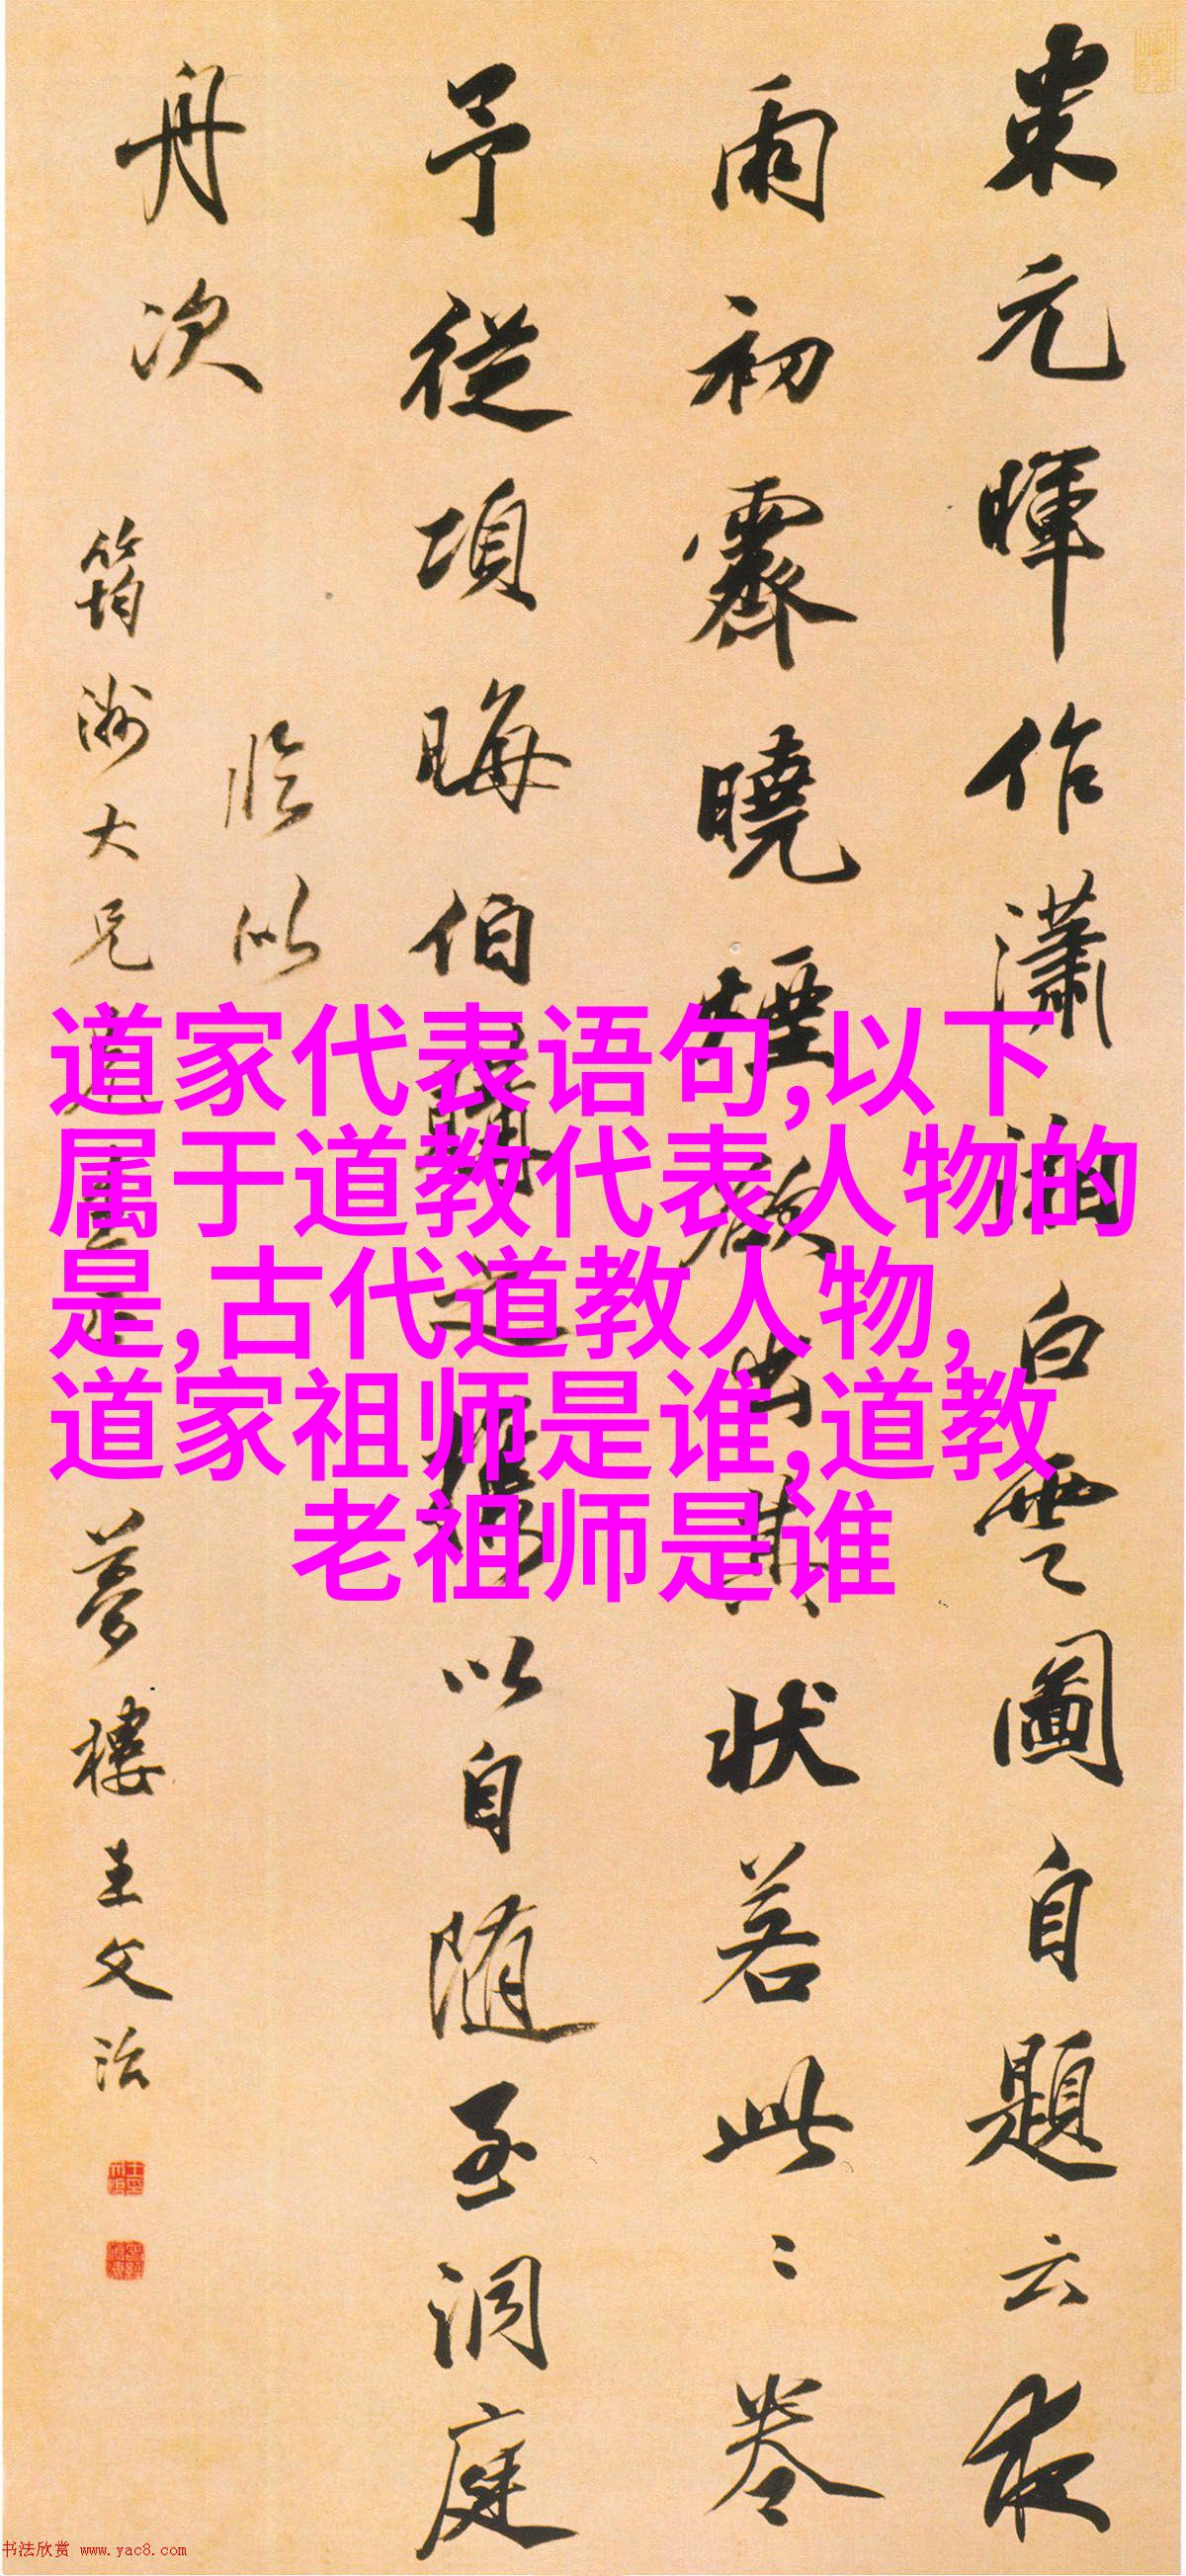 米元暉作瀟湘白雲圖自題云夜
雨初霽曉煙欲出其狀若此〻卷
予從項晦伯購之攜以自随至洞庭
舟次
臨似
筠洲大兄
夢樓王文治
道家代表语句,以下
属于道教代表人物的
是,古代道教人物,
道家祖师是谁,道教
老祖师是谁
书法欣赏 www.yac8.com